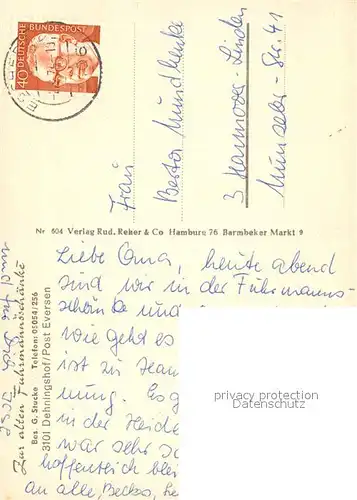 40 DEUTSCHE BUNDESPOST
Frau
Berta
3 Hannover-Linden
Str. 41
Nr 604 Verlag Rud. Reher & Co Hamburg 76 Barmbeker Markt 9
Liebe Oma, heute abend
sind wir in der Fuhrmanns-
schänke und
wie geht es
ist zu Hau
nung. Es g
in der Heide
war sehr sc
hoffentlich blei
an alle,
Zur alten Fuhrmannsschänke
Bes. G. Stucke Telefon: 05054/256
3101 Dehningshof/Post Eversen
privacy protection
Datenschutz